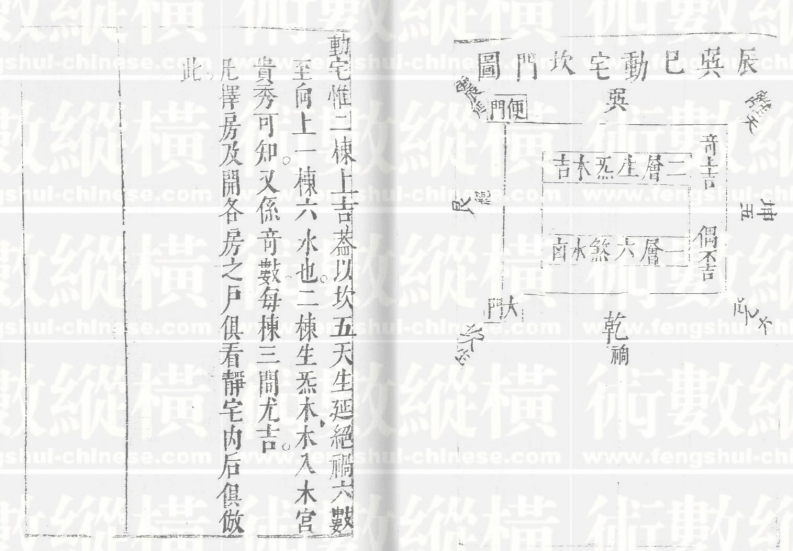 辰巽巳動宅坎門圖
巽
便門
竒上吉
偶不吉
二層生炁木吉
一層六煞水凶
大門
乾
禍
坤
五
艮
絕
動宅惟二棟上吉葢以坎五天生延絕禍六數
至向上一棟六水也。二棟生炁木木入木宮
貴秀可知。又係竒數每棟三間尤吉。
凢擇房及開各房之戶俱看靜宅内后俱倣
此。
術數縱橫
www.fengshui-chinese.com